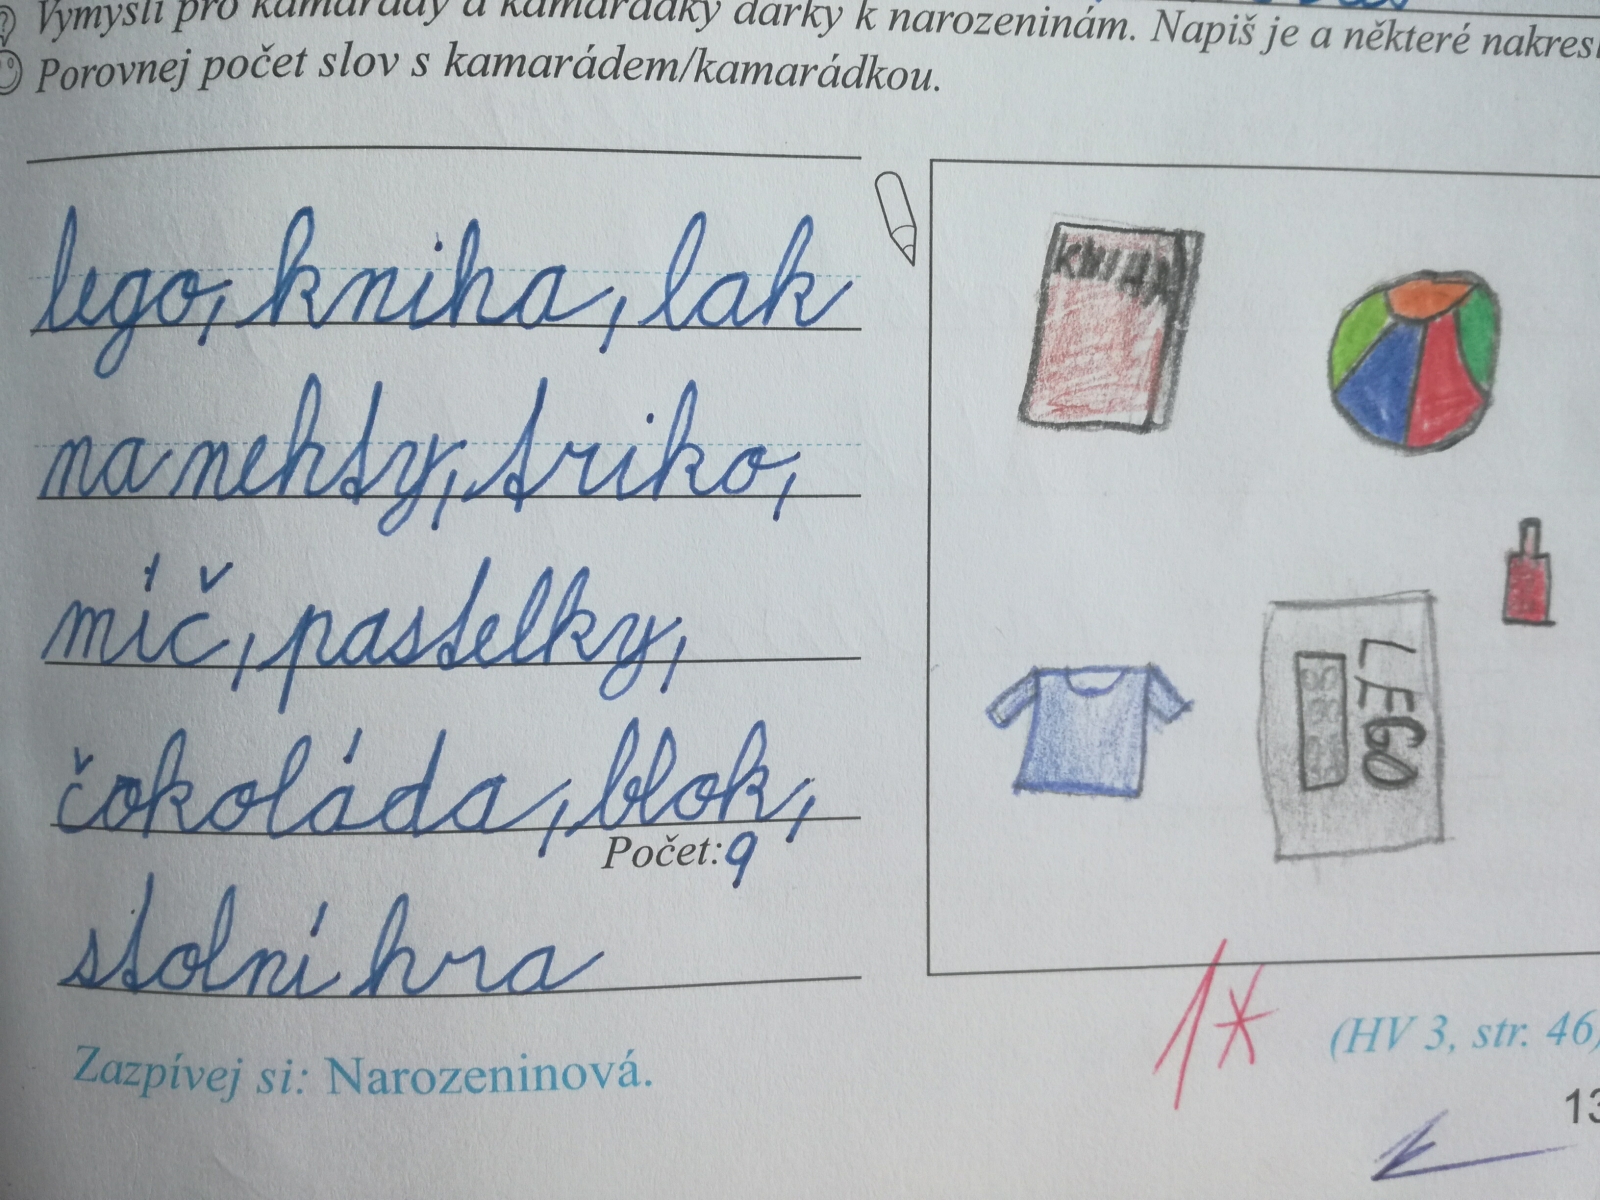 Vymysli pro kamarády a kamarádky dárky k narozeninám. Napiš je a některé nakresl
Porovnej počet slov s kamarádem/kamarádkou.
lego, kniha, lak
na nehty, triko,
míč, pastelky,
čokoláda, blok,
Počet: 9
stolní hra
KNIHA
LEGO
1*
Zazpívej si: Narozeninová.
(HV 3, str. 46)
13